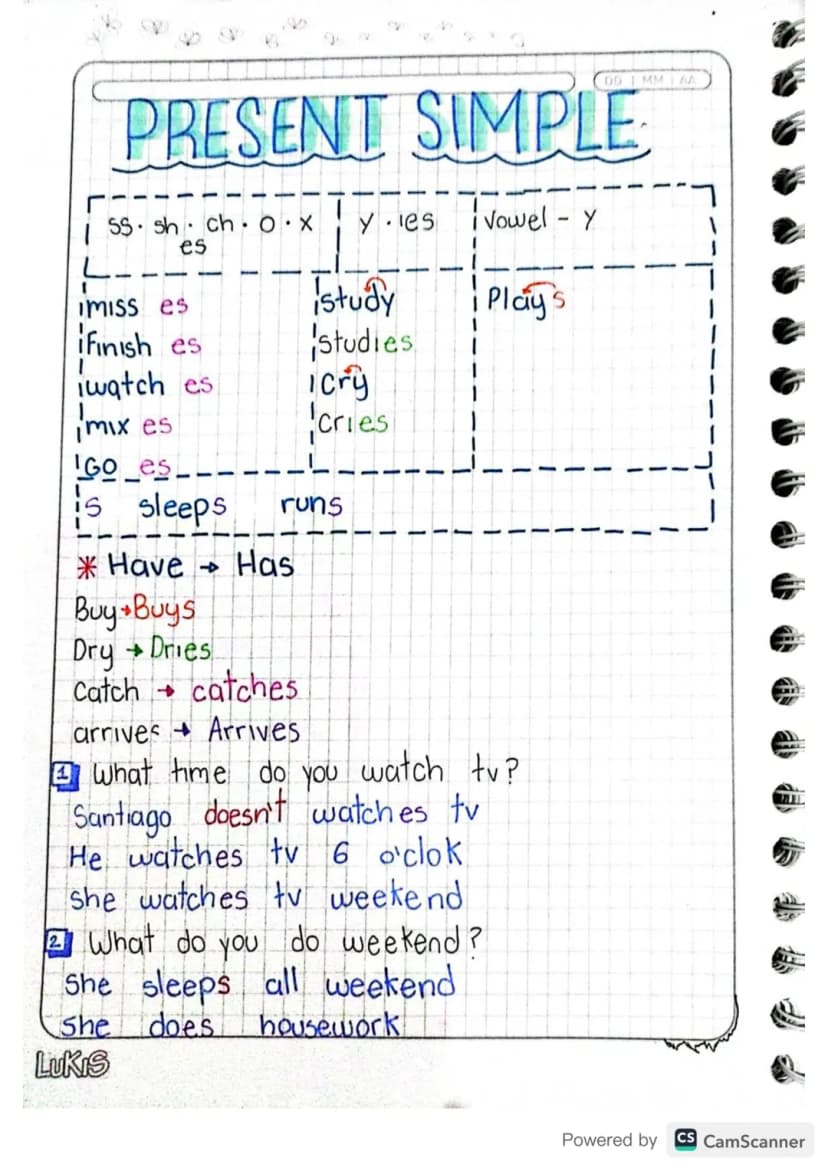 DD MM AA
PRESENT SIMPLE
ss · sh · ch · o · x
es
y · ies
Vowel - y
miss es
finish es
watch es
mix es
Go es
study
studies
cry
cries
Plays
s sleeps runs
* Have → Has
Buy → Buys
Dry → Dries
Catch → catches
arrives → Arrives
1 What time do you watch tv?
Santiago doesn't watches tv
He watches tv 6 o'clok
She watches tv weekend
2 What do you do weekend?
She sleeps all weekend
She does housework
LUKIS
Powered by CS CamScanner